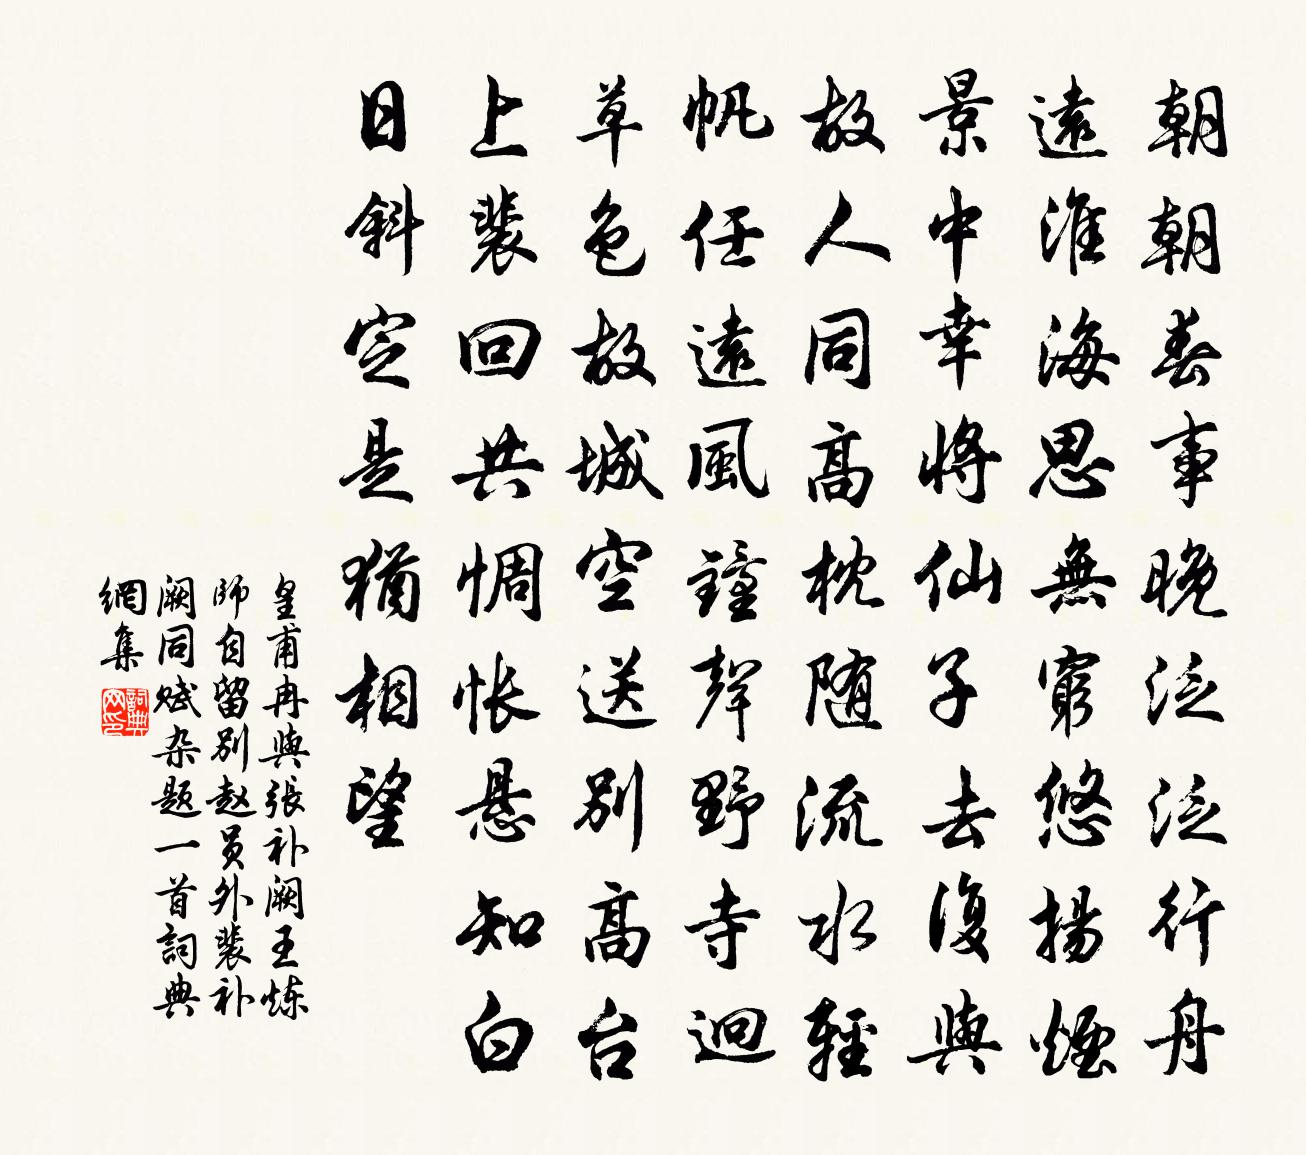 朝朝春事晚泛泛行舟
遠淮海思無窮悠揚煙
景中幸將仙子去復與
故人同高枕随流水輕
帆任遠風鐘聲野寺迥
草色故城空送別高台
上裴回共惆怅悬知白
日斜定是猶相望
皇甫冉與張补阙王炼
師自留別赵员外裴补
阙同赋杂题一首詞典
網集
詞典
网